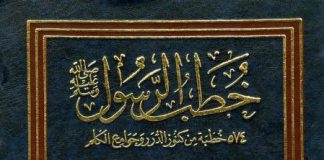 خطب الرسول
صلى الله عليه وسلم
٥٧٤ خطبة من كنوز الدرر وجوامع الكلم